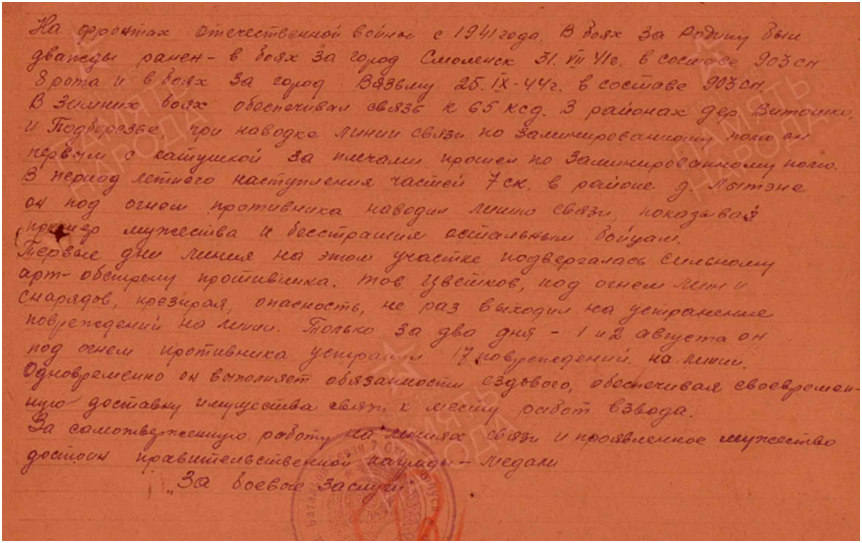 На фронтах отечественной войны с 1941 года. В боях за Родину был
дважды ранен - в боях за город Смоленск 31. VII 41г. в составе 903 сп
8 рота и в боях за город Вязьму 25. IX - 44г. в составе 903 сп.
В зимних боях обеспечивал связь к 65 ксд. В районах дер.
и Подберезье, при наводке линии связи по заминированному полю он
первым с катушкой за плечами прошел по заминированному полю.
В период летнего наступления частей 7 ск. в районе д.
он под огнем противника наводил линию связи, показывая
пример мужества и бесстрашия остальным бойцам.
Первые дни линия на этом участке подвергалась сильному
арт-обстрелу противника. тов Цветков, под огнем мин и
снарядов, презирая, опасность, не раз выходил на устранение
повреждений на линии. Только за два дня - 1 и 2 августа он
под огнем противника устранил 17 повреждений на линии.
Одновременно он выполняет обязанности ездового, обеспечивая своевремен-
ную доставку имущества связи к месту работ взвода.
За самоотверженную работу на линиях связи и проявленное мужество
достоин правительственной награды - медали
"За боевые заслуги"
ПАМЯТЬ
НАРОДА